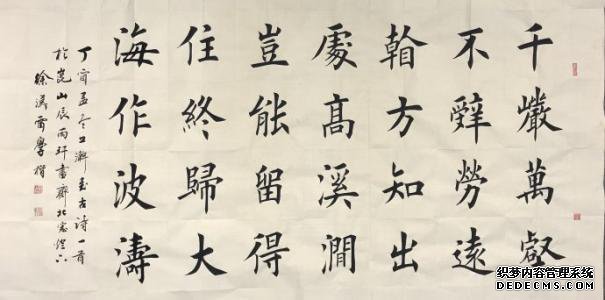 千巖萬壑
不辤勞遠
㸔方知出
處高溪澗
豈能留得
住終歸大
海作波濤
丁酉孟冬 古诗一首
於崑山 書齋北窗燈下
织梦内容管理系统
DEDECMS.COM